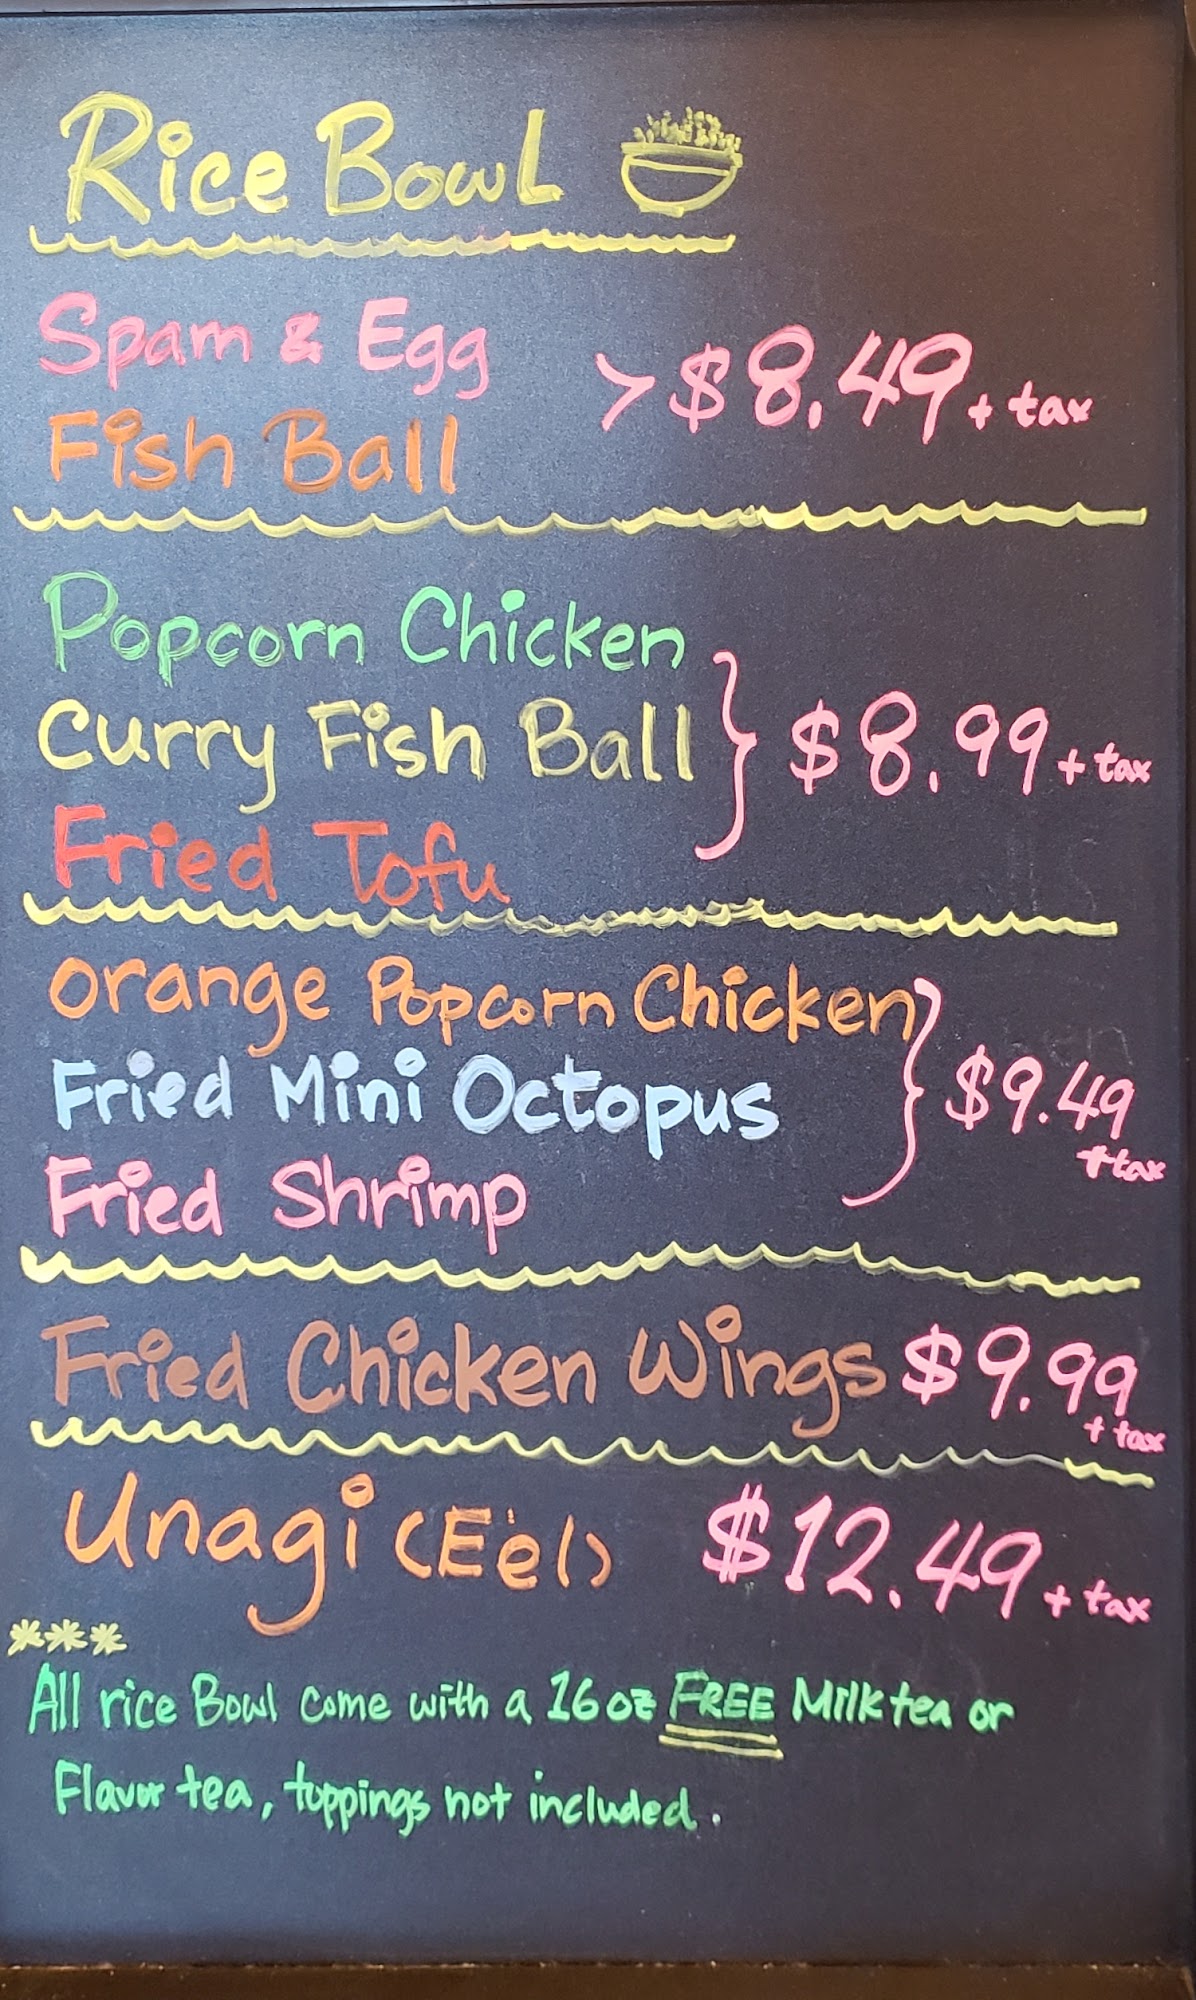 Rice Bowl
Spam & Egg
Fish Ball
> $8.49 + tax
Popcorn Chicken
Curry Fish Ball
Fried Tofu
} $8.99 + tax
Orange Popcorn Chicken
Fried Mini Octopus
Fried Shrimp
} $9.49
+ tax
Fried Chicken Wings $9.99
+ tax
Unagi (Eel) $12.49 + tax
***
All rice Bowl come with a 16 oz FREE Milk tea or
Flavor tea, toppings not included.